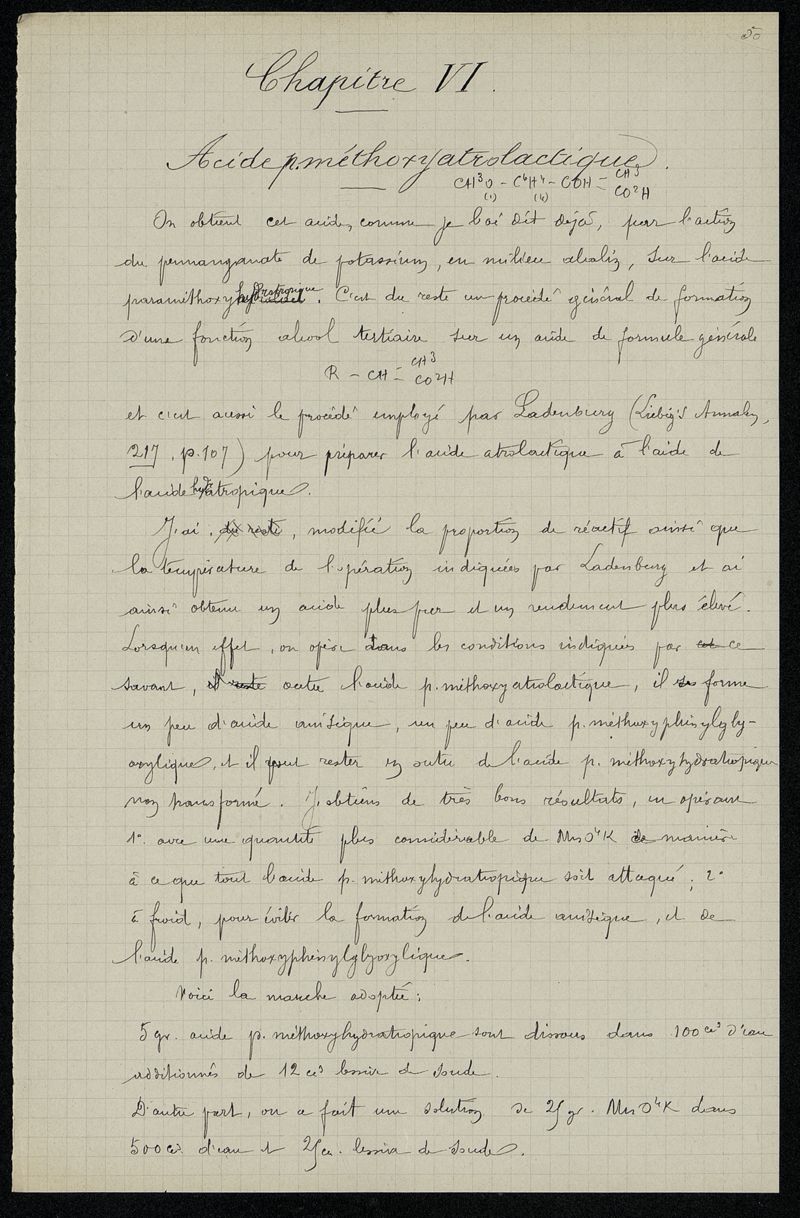 50
Chapitre VI.
Acide p. méthoxyatrolactique.
CH³O - C⁶H⁴ - COH = CH³
(1) (4) CO²H
On obtient cet acide, comme je l'ai dit déjà, par l'action
du permanganate de potassium, en milieu alcalin, sur l'acide
paraméthoxyhydratropique. C'est du reste un procédé général de formation
d'une fonction alcool tertiaire sur un acide de formule générale
R - CH = CH³
CO²H
et c'est aussi le procédé employé par Ladenburg (Liebig's Annalen,
217, p. 107) pour préparer l'acide atrolactique à l'aide de
l'acide hydratropique.
J'ai, du reste, modifié la proportion de réactif ainsi que
la température de l'opération indiquées par Ladenburg et ai
ainsi obtenu un acide plus pur et un rendement plus élevé.
Lorsqu'en effet, on opère dans les conditions indiquées par cet ce
savant, il reste outre l'acide p. méthoxyatrolactique, il se forme
un peu d'acide anisique, un peu d'acide p. méthoxyphénylgly-
oxylique, et il peut rester en outre de l'acide p. méthoxyhydratropique
non transformé. J'obtiens de très bons résultats, en opérant
1° avec une quantité plus considérable de MnO⁴K de manière
à ce que tout l'acide p. méthoxyhydratropique soit attaqué; 2°
à froid, pour éviter la formation de l'acide anisique, et de
l'acide p. méthoxyphénylglyoxylique.
Voici la marche adoptée:
5 gr. acide p. méthoxyhydratropique sont dissous dans 100 cc³ d'eau
additionnés de 12 cc³ lessive de soude.
D'autre part, on a fait une solution de 25 gr. MnO⁴K dans
500 cc³ d'eau et 25 cc. lessive de soude.